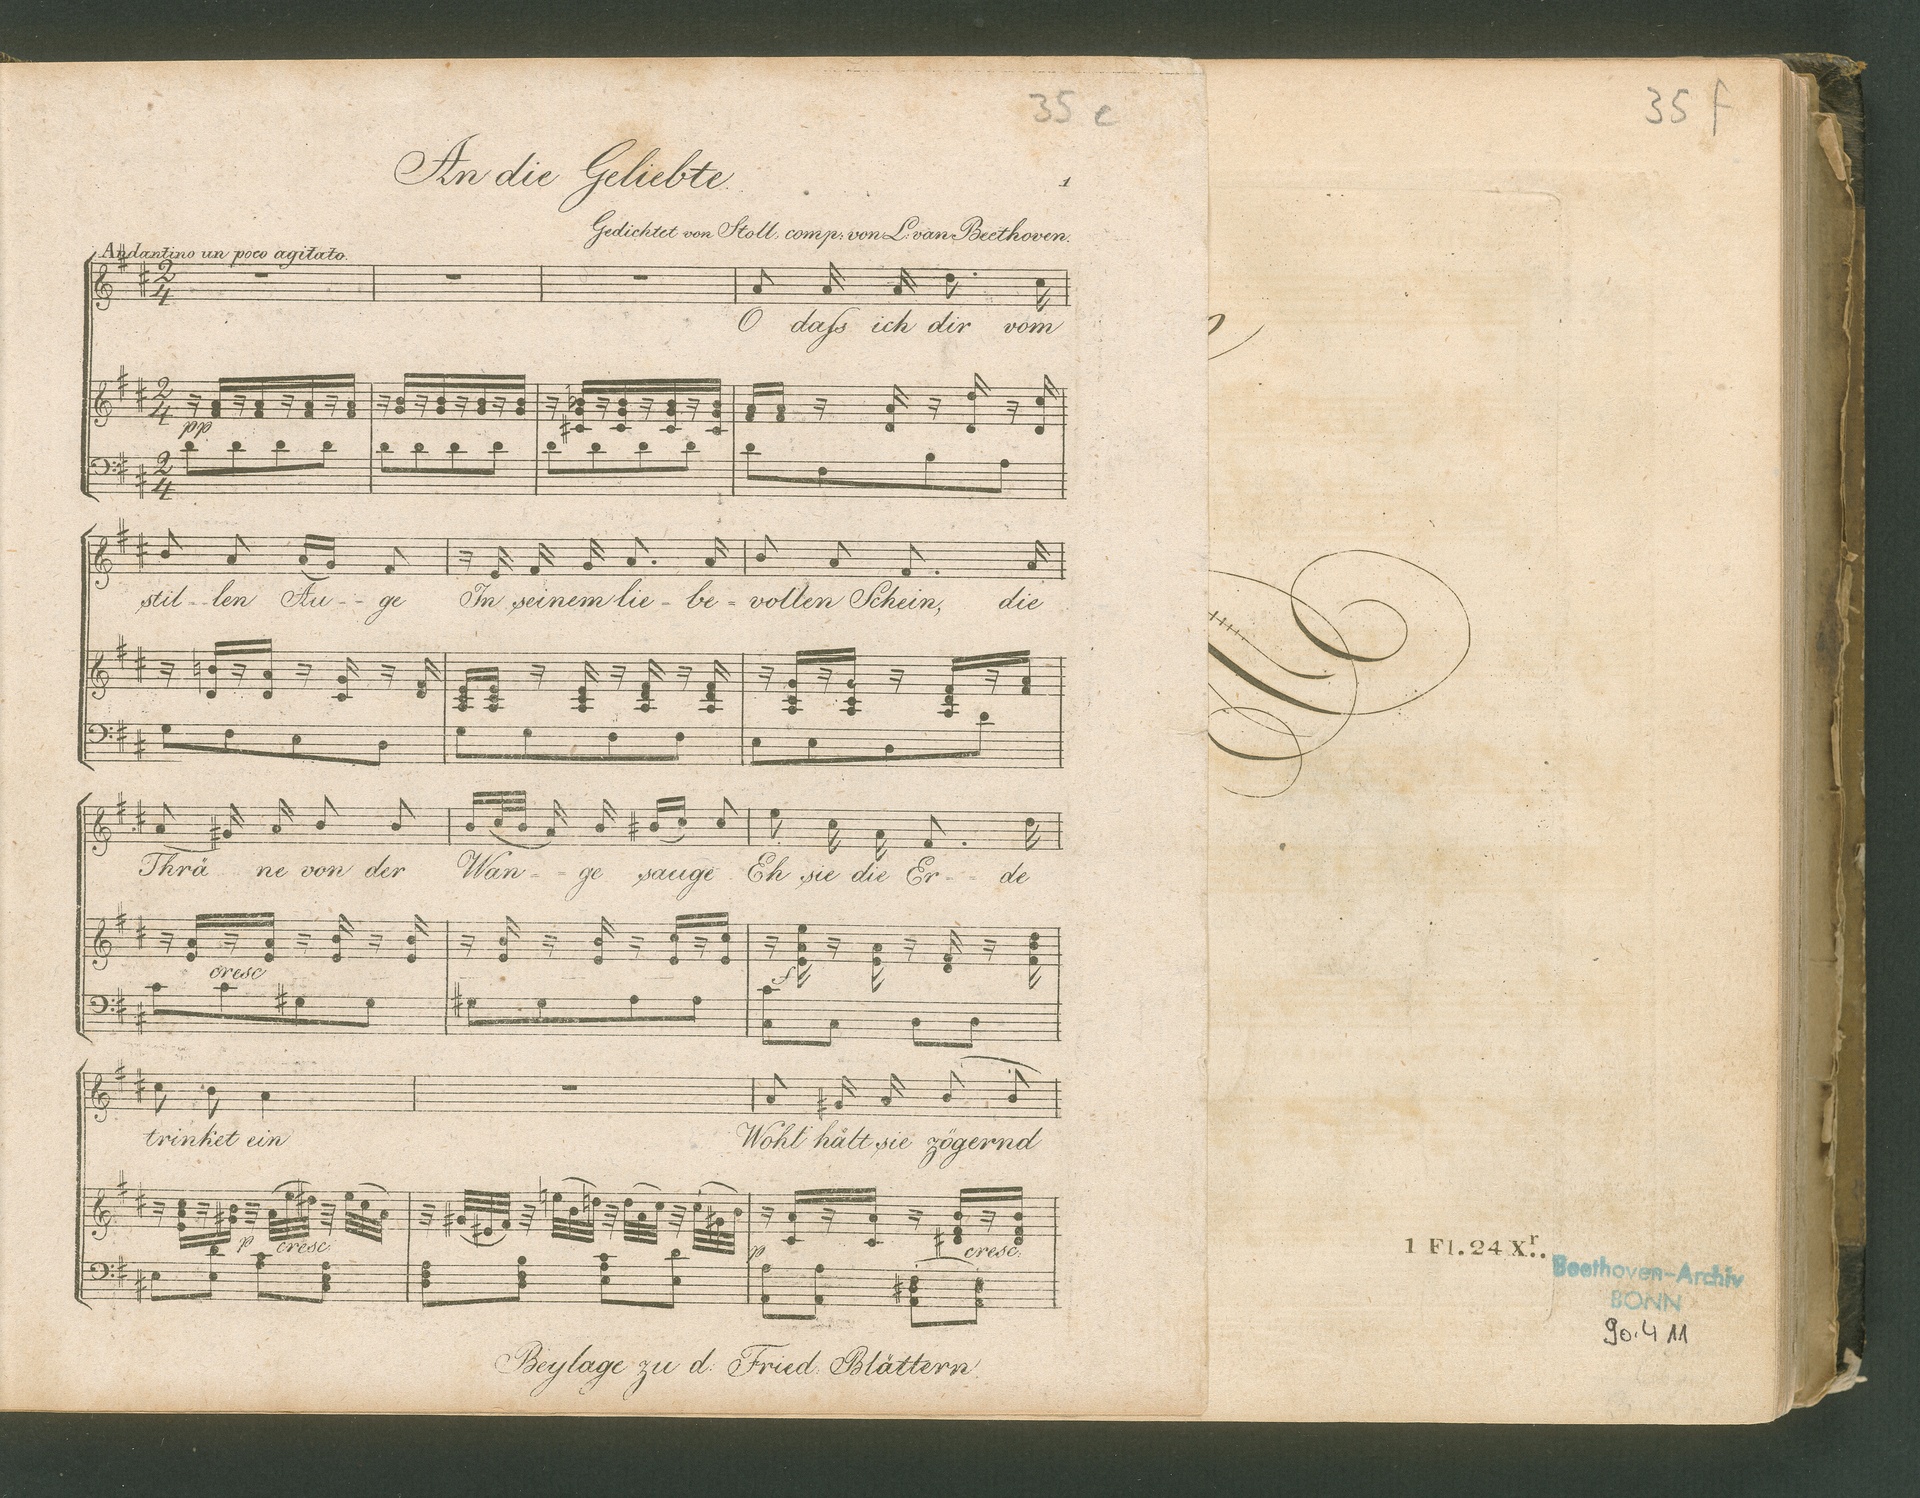 35 e
An die Geliebte.
1
Gedichtet von Stoll. comp: von L: van Beethoven.
Andantino un poco agitato.
O daſs ich dir vom
pp
stil - - len Au - - ge In seinem lie - be - vollen Schein, die
Thrä ne von der Wan - - ge sauge Eh sie die Er - - de
cresc
f
trinket ein Wohl hält sie zögernd
p cresc. p cresc.
Beylage zu d: Fried. Blättern.
35 f
1 Fl. 24 Xr.
Beethoven-Archiv
BONN
90.4 11